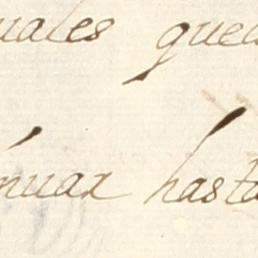 uales qued
nuar hasta